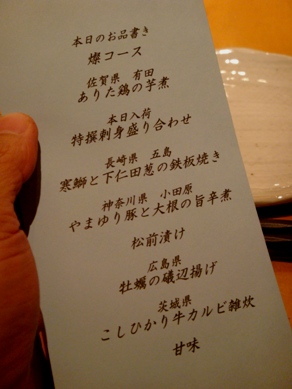 本日のお品書き
燦コース
佐賀県 有田
ありた鶏の芋煮
本日入荷
特撰刺身盛り合わせ
長崎県 五島
寒鰤と下仁田葱の鉄板焼き
神奈川県 小田原
やまゆり豚と大根の旨辛煮
松前漬け
広島県
牡蠣の磯辺揚げ
茨城県
こしひかり牛カルビ雑炊
甘味